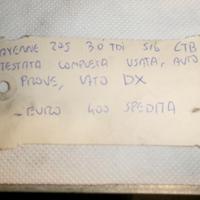 CAYENNE 205 3.0 TDI SIG CTB
TESTATA COMPLETA USATA, AUTO
PROVE, LATO DX
- EURO 400 SPEDITA